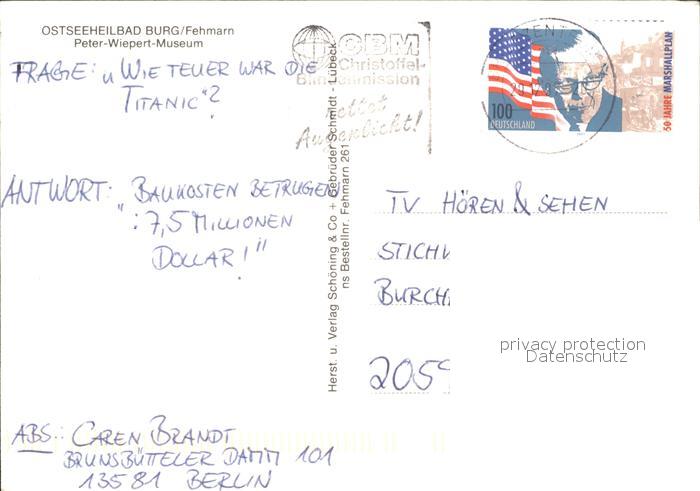 OSTSEEHEILBAD BURG/Fehmarn
Peter-Wiepert-Museum
FRAGE: „WIE TEUER WAR DIE
TITANIC"?
ANTWORT: „BAUKOSTEN BETRUGEN
: 7,5 MILLIONEN
DOLLAR!"
ABS.: CAREN BRANDT
BRUNSBÜTTELER DAMM 101
13581 BERLIN
Herst. u. Verlag Schöning & Co + Gebrüder Schmidt - Lübeck
ns Bestellnr. Fehmarn 261
CBM
Christoffel-
Blindenmission
rettet
Augenlicht!
100
DEUTSCHLAND
50 JAHRE MARSHALLPLAN
TV HÖREN & SEHEN
STICHW
BURCH
2059
privacy protection
Datenschutz